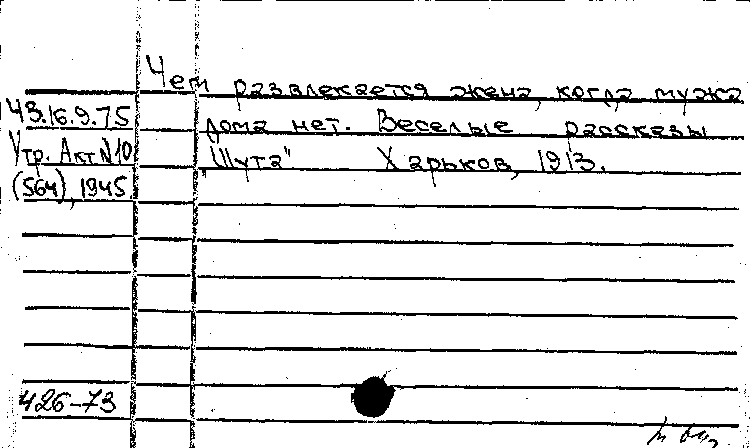 Чем развлекается жена, когда мужа
ЧЗ.16.9.75 дома нет. Веселые рассказы
Утр. Акт N10 "Шута" Харьков, 1913.
(564), 1945
426-73